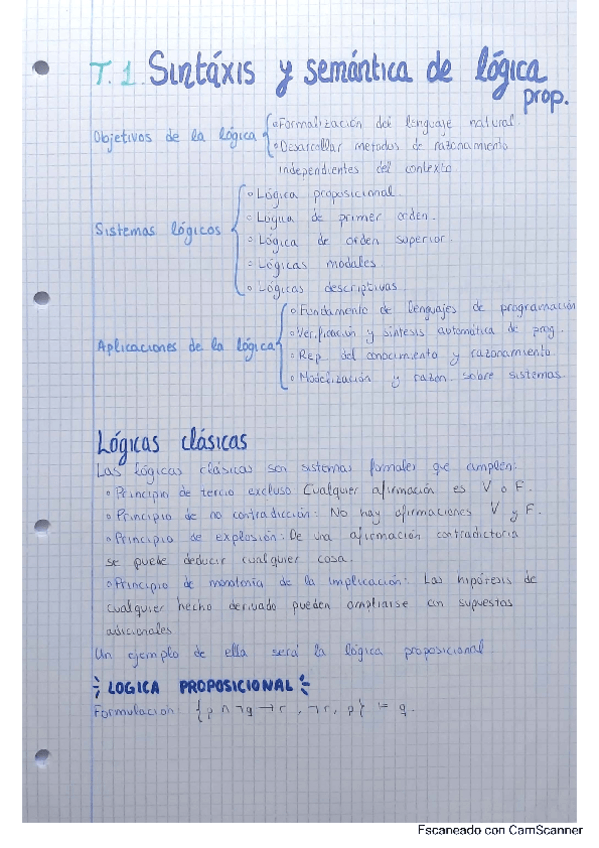 T.1. Sintáxis y semántica de lógica
prop.
Objetivos de la lógica
◦ Formalización del lenguaje natural.
◦ Desarrollar metodos de razonamiento
independientes del contexto
Sistemas lógicos
◦ Lógica proposicional.
◦ Lógica de primer orden.
◦ Lógica de orden superior.
◦ Lógicas modales
◦ Lógicas descriptivas
Aplicaciones de la lógica
◦ Fundamento de lenguajes de programación
◦ Verificación y síntesis automática de prog.
◦ Rep. del conocimiento y razonamiento
◦ Modelización y razon. sobre sistemas.
Lógicas clásicas
Las lógicas clásicas son sistemas formales que cumplen:
◦ Principio de tercio excluso Cualquier afirmación es V o F.
◦ Principio de no contradicción: No hay afirmaciones V y F.
◦ Principio de explosión: De una afirmación contradictoria
se puede deducir cualquier cosa.
◦ Principio de monotonía de la implicación: Las hipótesis de
cualquier hecho derivado pueden ampliarse con supuestas
adicionales
Un ejemplo de ella será la lógica proposicional
LOGICA PROPOSICIONAL
Formulación: {p ∧ ¬q → r, ¬r, p} ⊨ q.
Escaneado con CamScanner